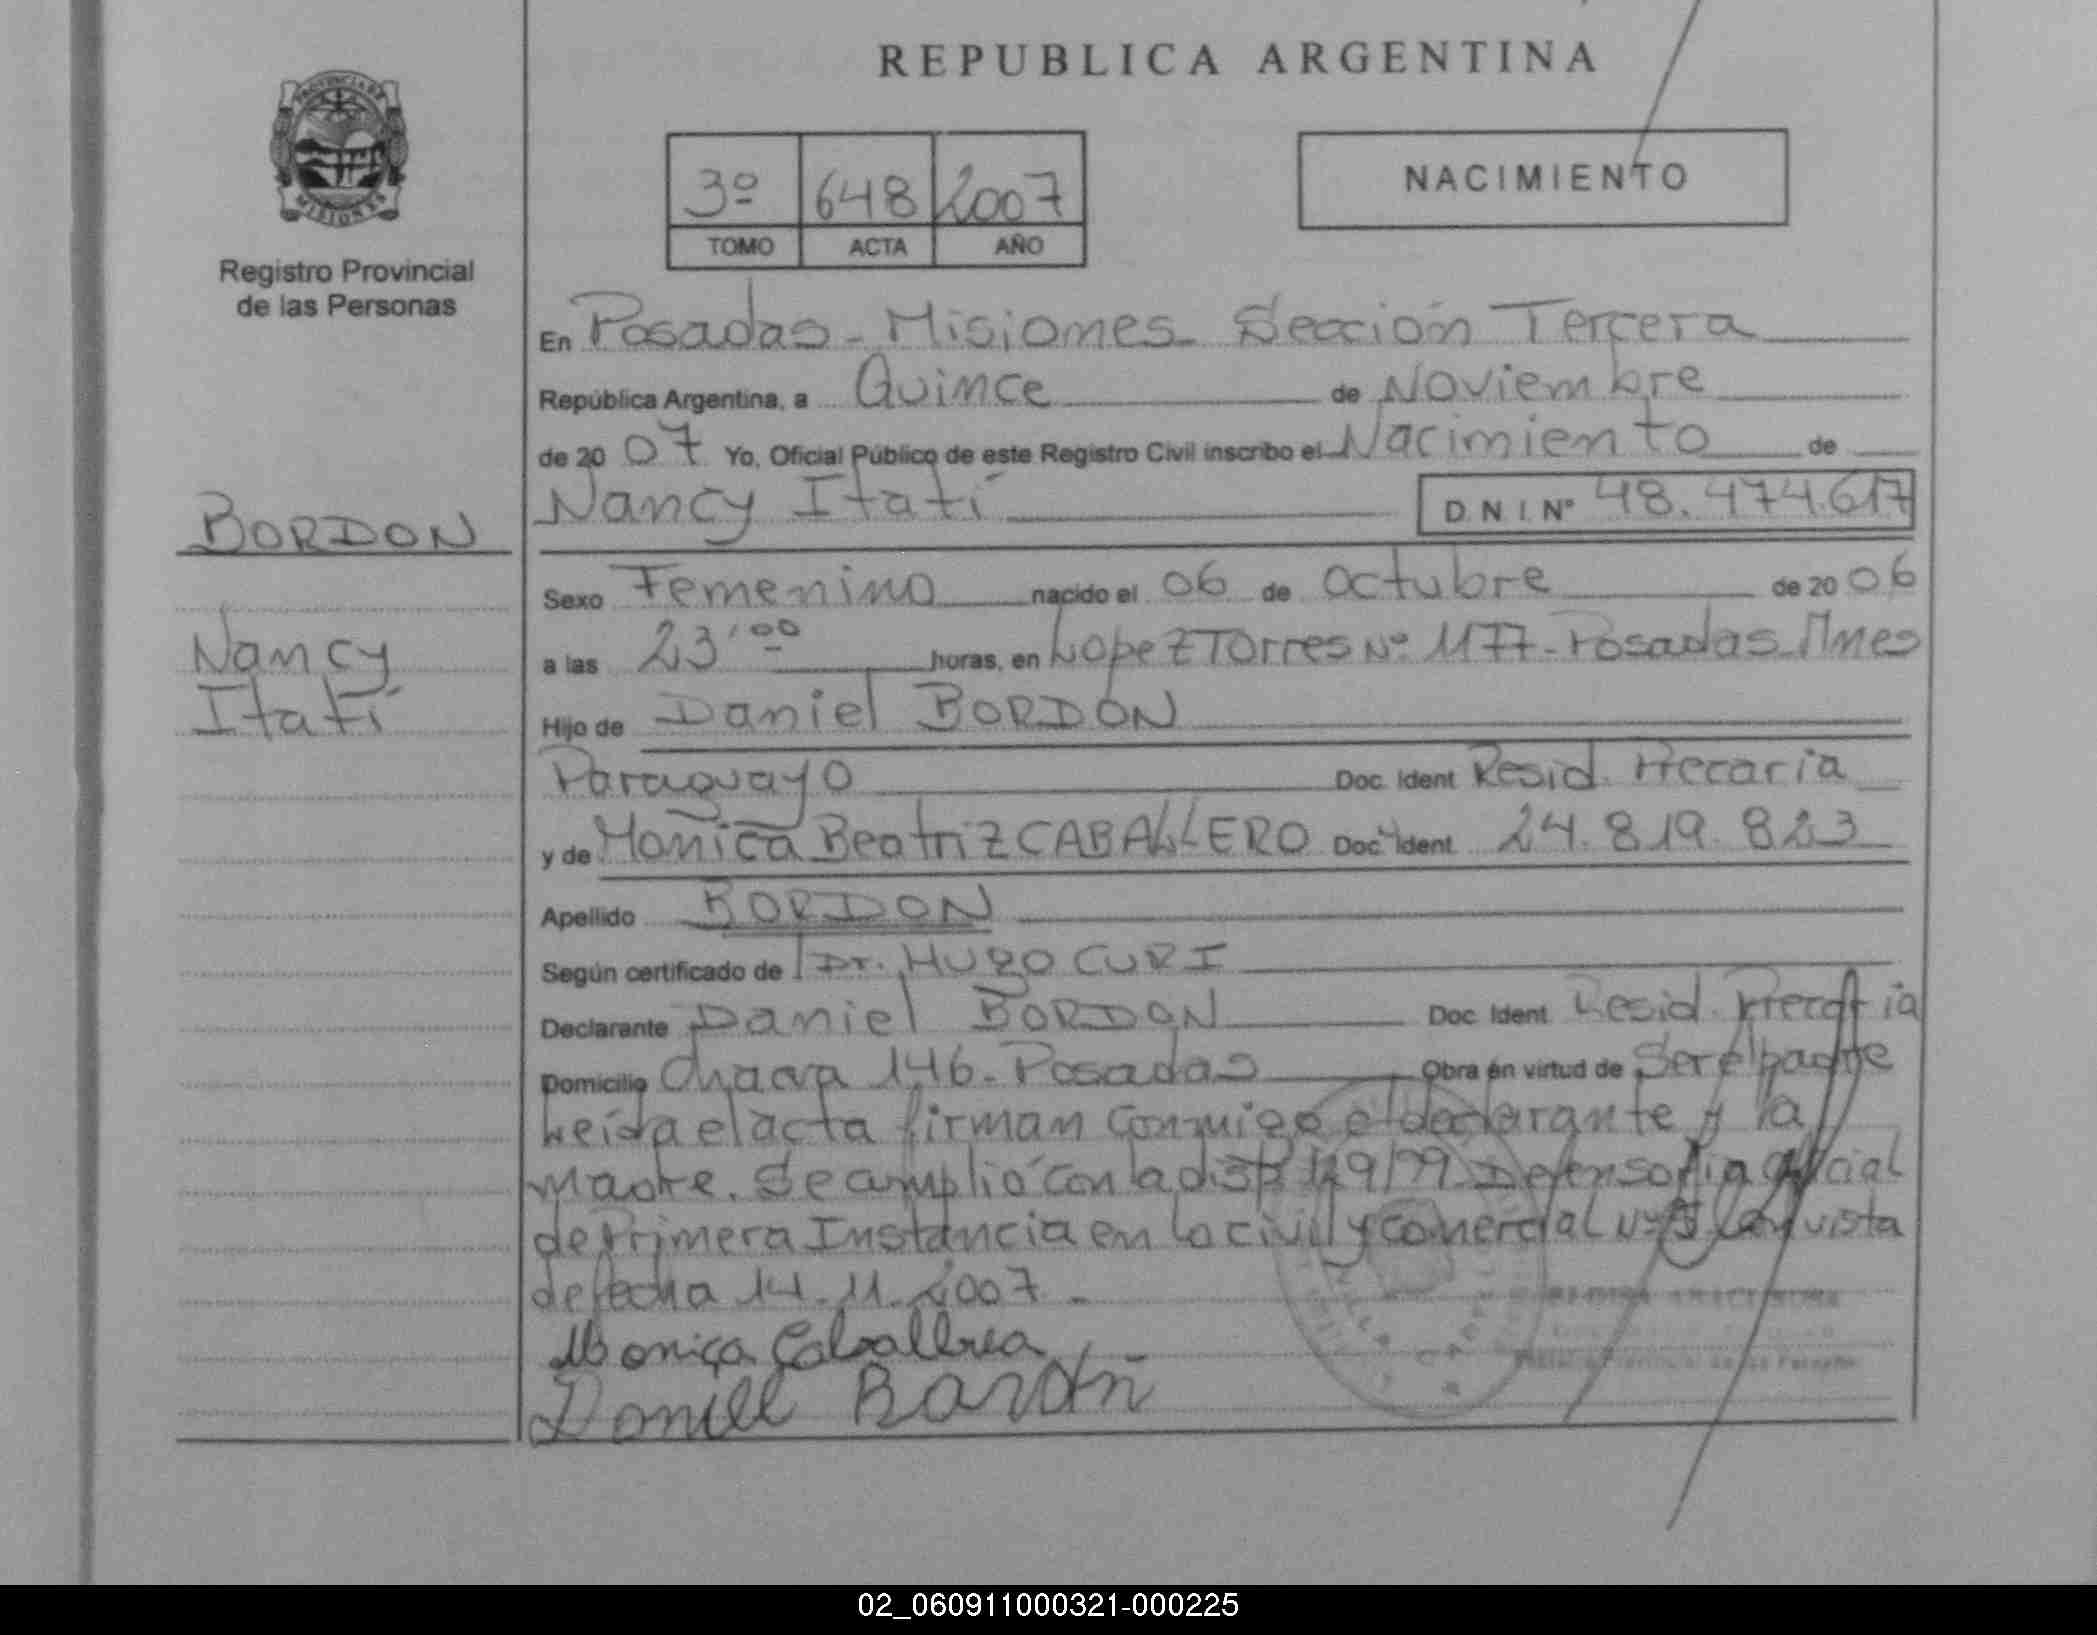 REPUBLICA ARGENTINA
PROVINCIA DE
MISIONES
Registro Provincial
de las Personas
3º 648 2007
TOMO ACTA AÑO
NACIMIENTO
En Posadas - Misiones - Sección Tercera
República Argentina, a Quince de Noviembre
de 20 07 Yo, Oficial Público de este Registro Civil inscribo el Nacimiento de
BORDON
Nancy Itatí D N I. Nº 48.474.617
Sexo Femenino nacido el 06 de Octubre de 20 06
Nancy
Itatí
a las 23'00 horas, en Lopez Torres Nº 1177 - Posadas Mnes
Hijo de Daniel BORDON
Paraguayo Doc. Ident Resid. Precaria
y de Monica Beatriz CABALLERO Doc. Ident 24.819.823
Apellido BORDON
Según certificado de Dr. Hugo CURI
Declarante Daniel BORDON Doc Ident Resid. Precaria
Domicilio Chacra 146 - Posadas Obra en virtud de Ser el padre
Leída el acta firman conmigo el declarante y la
madre. Se amplió con la disp 129/99 Defensoria Oficial
de Primera Instancia en lo civil y comercial Nº 5 con vista
de fecha 14.11.2007 -
Monica
Daniel
02_060911000321-000225